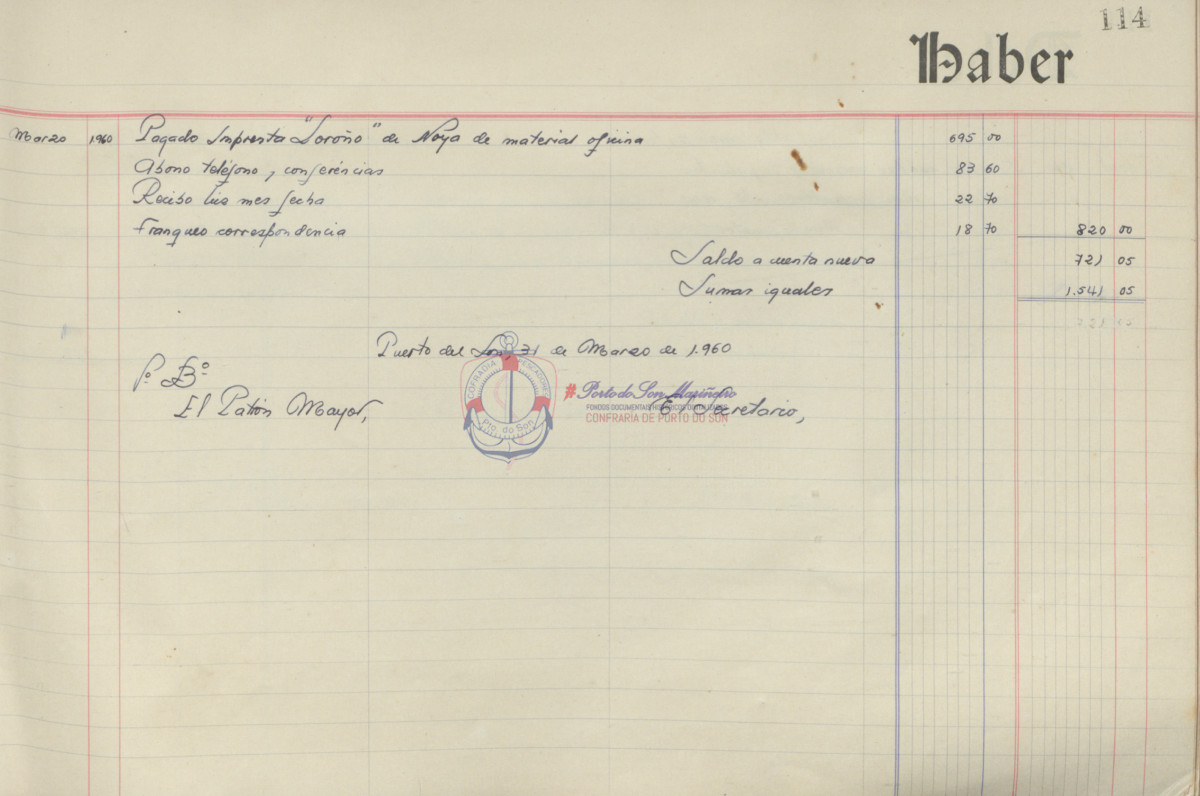 114
Haber
Marzo 1960 Pagado Imprenta "Loroño" de Noya de material oficina 695 00
Abono teléfono, conferéncias 83 60
Recibo luz mes fecha 22 70
Franqueo correspondencia 18 70 820 00
Saldo a cuenta nueva 721 05
Sumas iguales 1.541 05
Puerto del Son, 31 de Marzo de 1.960
Vº Bº
El Patrón Mayor, El Secretario,
COFRADIA PESCADORES
Pto. do Son
#Porto do Son Mariñeiro
FONDOS DOCUMENTAIS HISTÓRICOS DIXITALIZADOS
CONFRARÍA DE PORTO DO SON